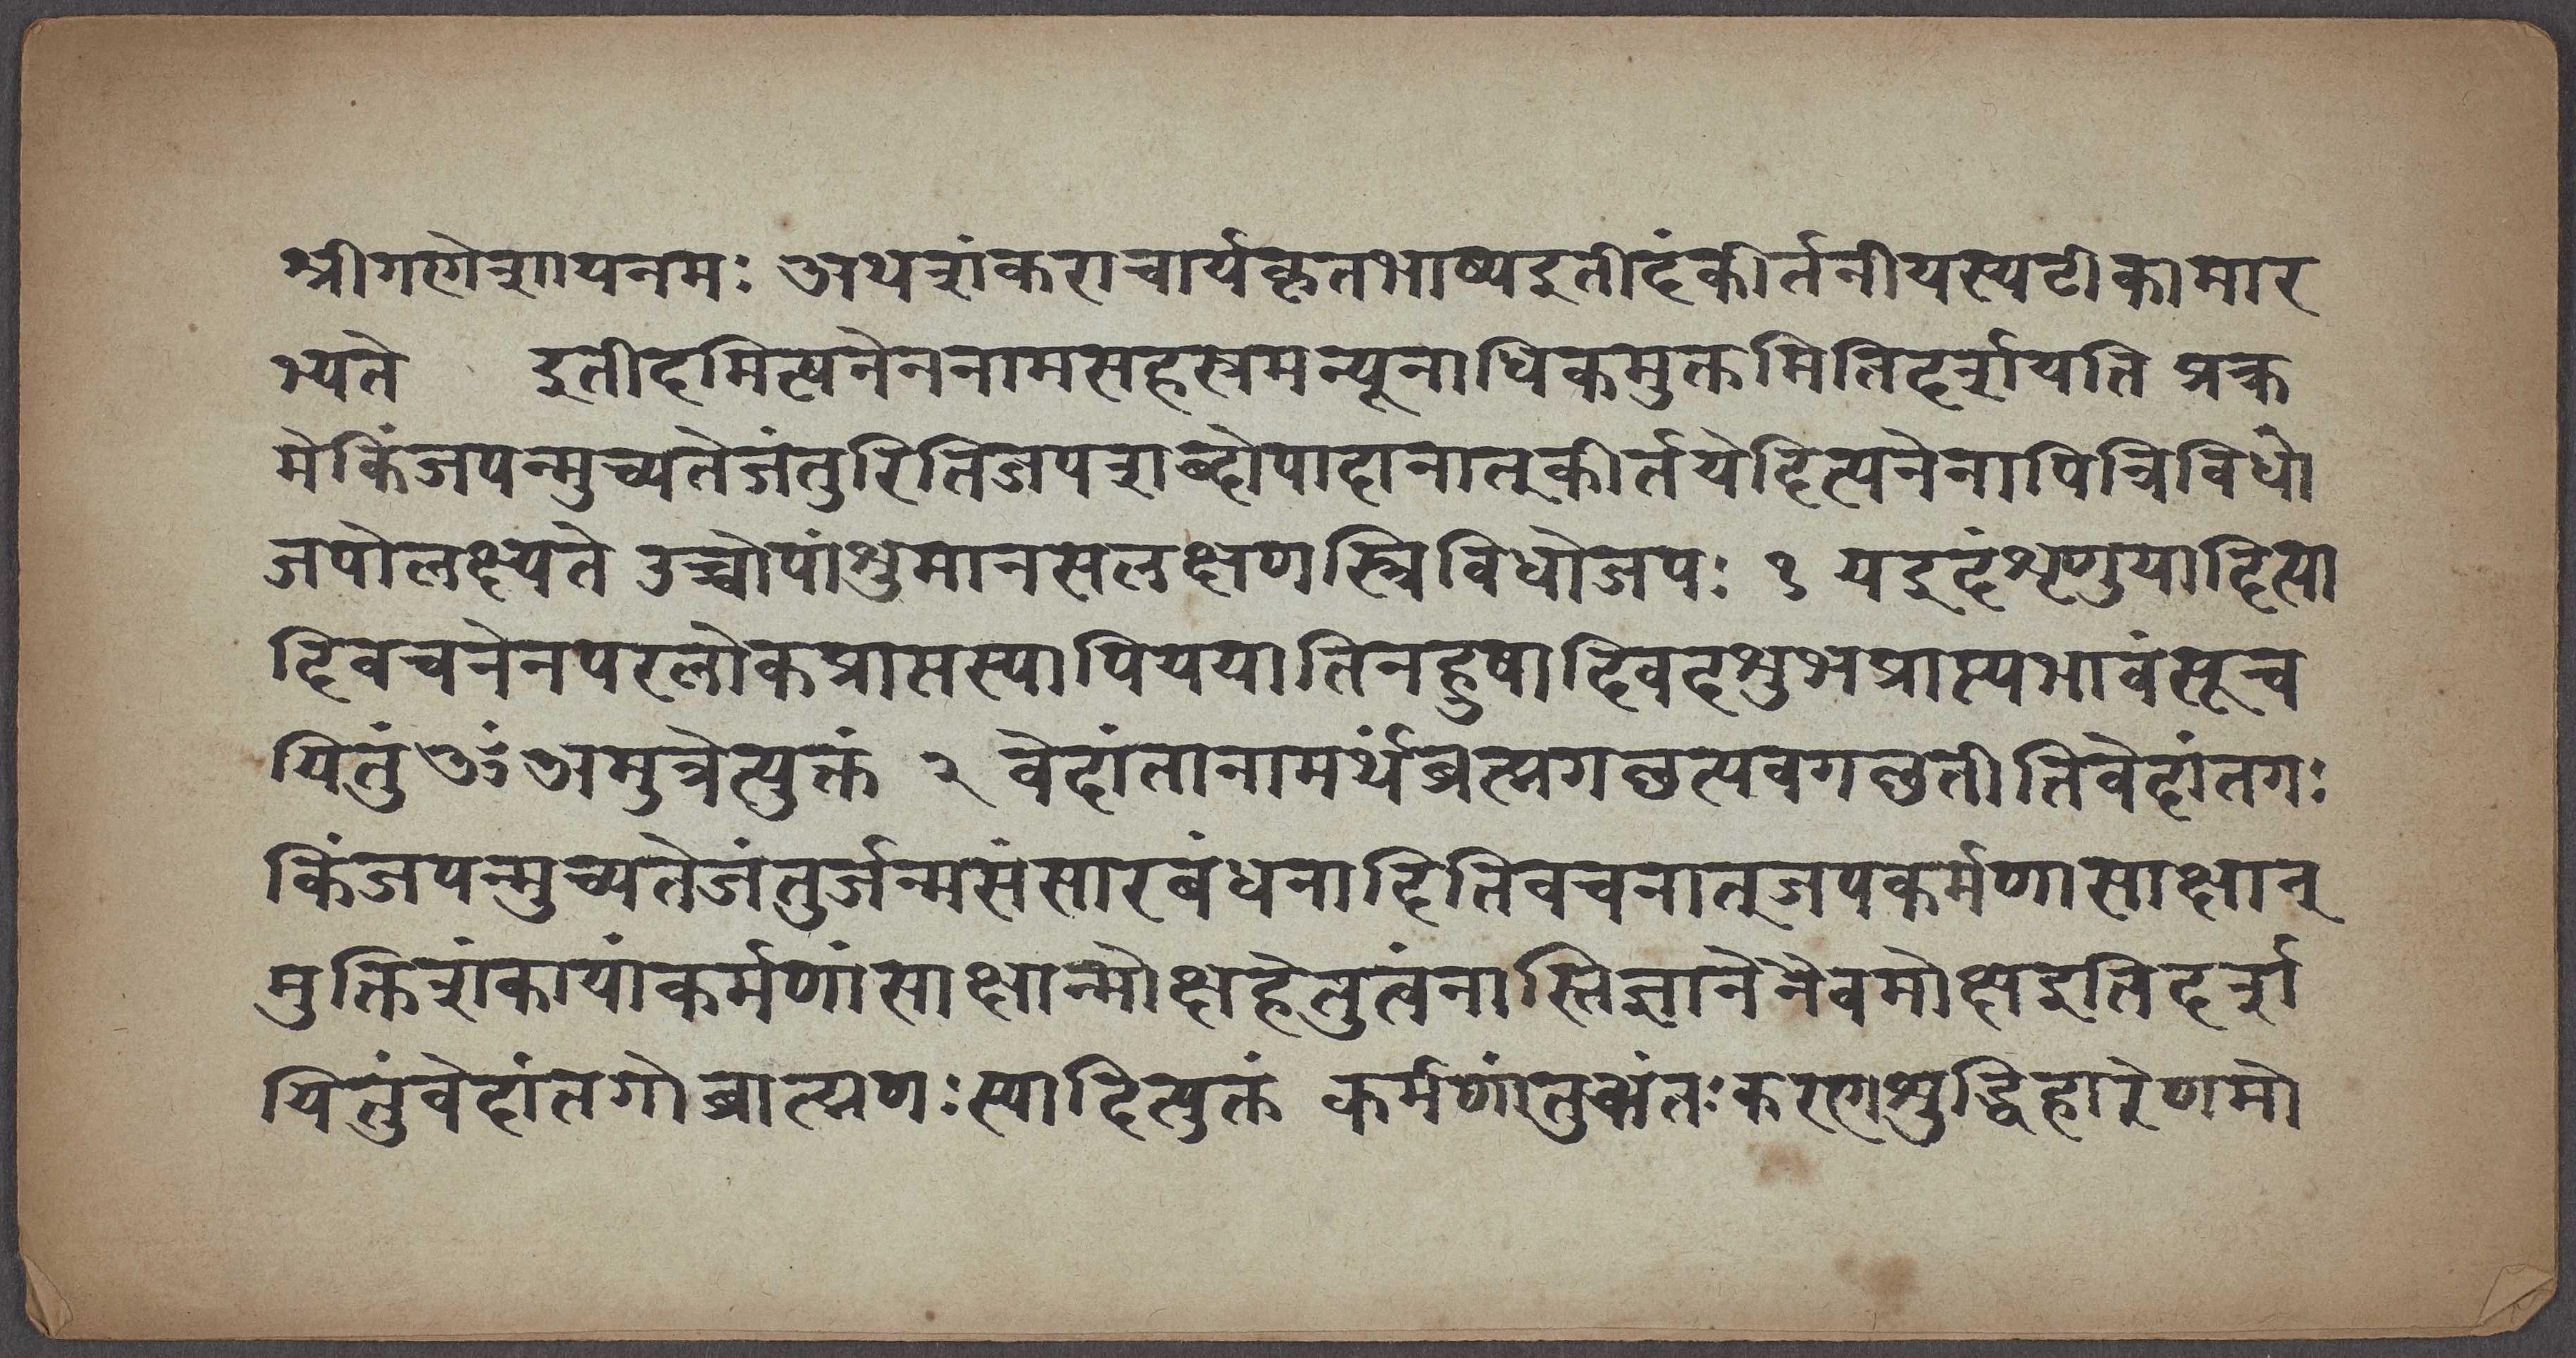 श्रीगणेशायनमः अथशंकराचार्यकृतभाष्यइतीदंकीर्तनीयस्यटीकामार
भ्यते इतीदमित्यनेननामसहस्रमन्यूनाधिकमुक्तमितिदर्शयति प्रक्र
मेकिंजपन्मुच्यतेजंतुरितिजपशब्दोपादानात्कीर्तयेदित्यनेनापित्रिविधो
जपोलक्ष्यते उच्चोपांशुमानसलक्षणस्त्रिविधोजपः १ यइदंशृणुयादित्या
दिवचनेनपरलोकप्राप्तस्यापिययातिनहुषादिवदशुभप्राप्त्यभावंसूच
यितुं ॐ अमुत्रेत्युक्तं २ वेदांतानामर्थंब्रह्मगछत्यवगछतीतिवेदांतगः
किंजपन्मुच्यतेजंतुर्जन्मसंसारबंधनादितिवचनात्जपकर्मणासाक्षान्
मुक्तिशंकायांकर्मणांसाक्षान्मोक्षहेतुत्वंनास्तिज्ञानेनैवमोक्षइतिदर्श
यितुंवेदांतगोब्राह्मणःस्यादित्युक्तं कर्मणांतुअंतःकरणशुद्धिद्वारेणमो